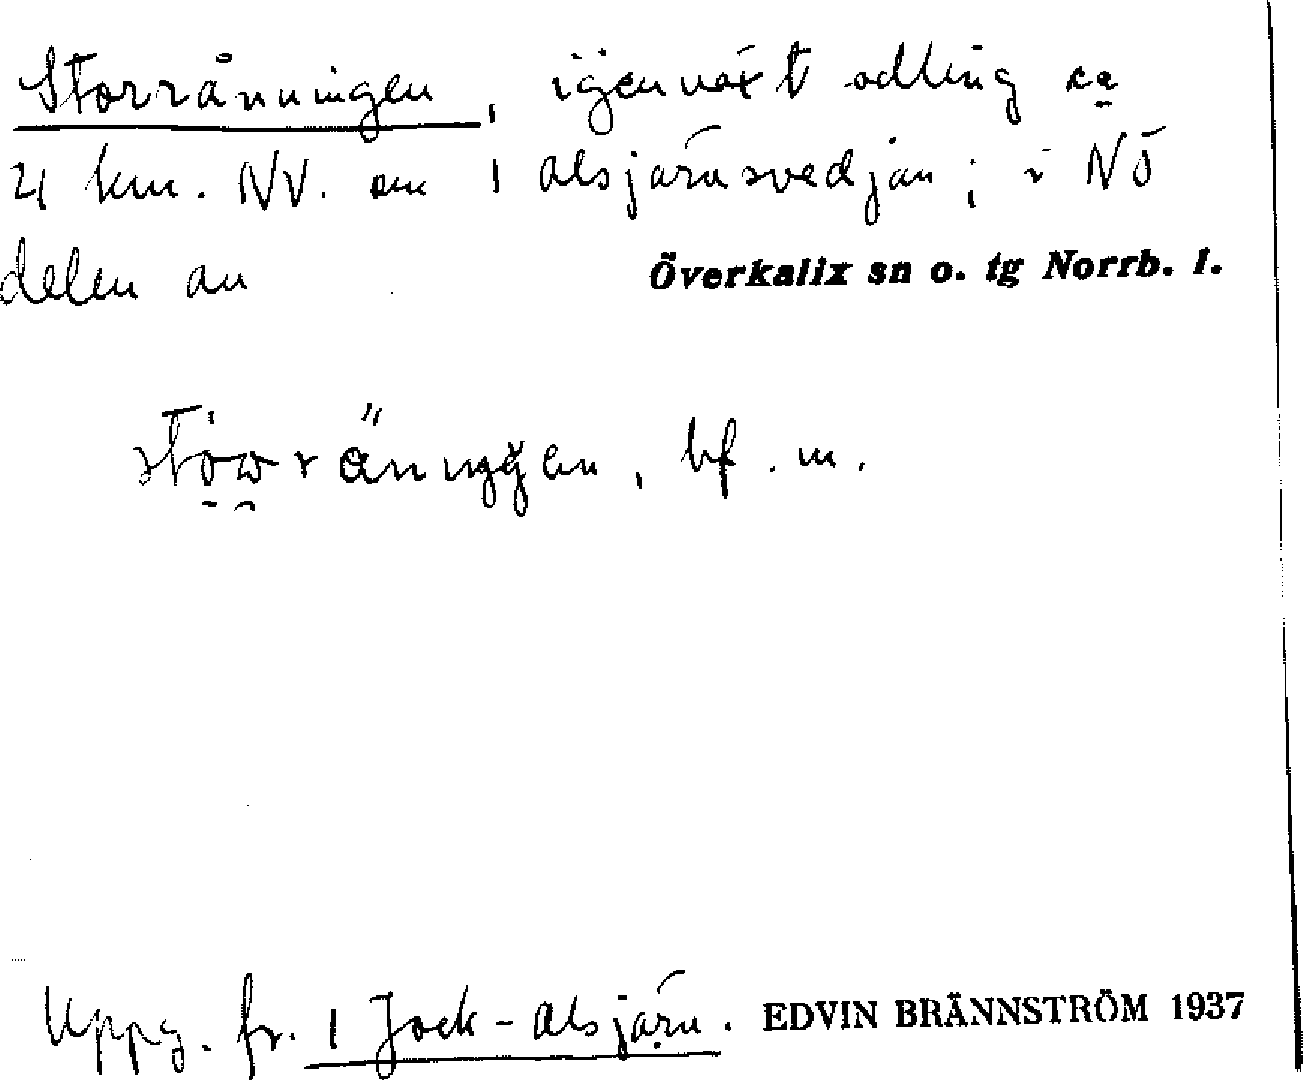 Storränningen, igenväxt odling ca
4 km. NV. om 1 Alsjärnsvedjan; i NÖ
delen av Överkalix sn o. tg Norrb. l.
bf. m.
Uppg. fr. 1 Jock-Alsjärn. EDVIN BRÄNNSTRÖM 1937